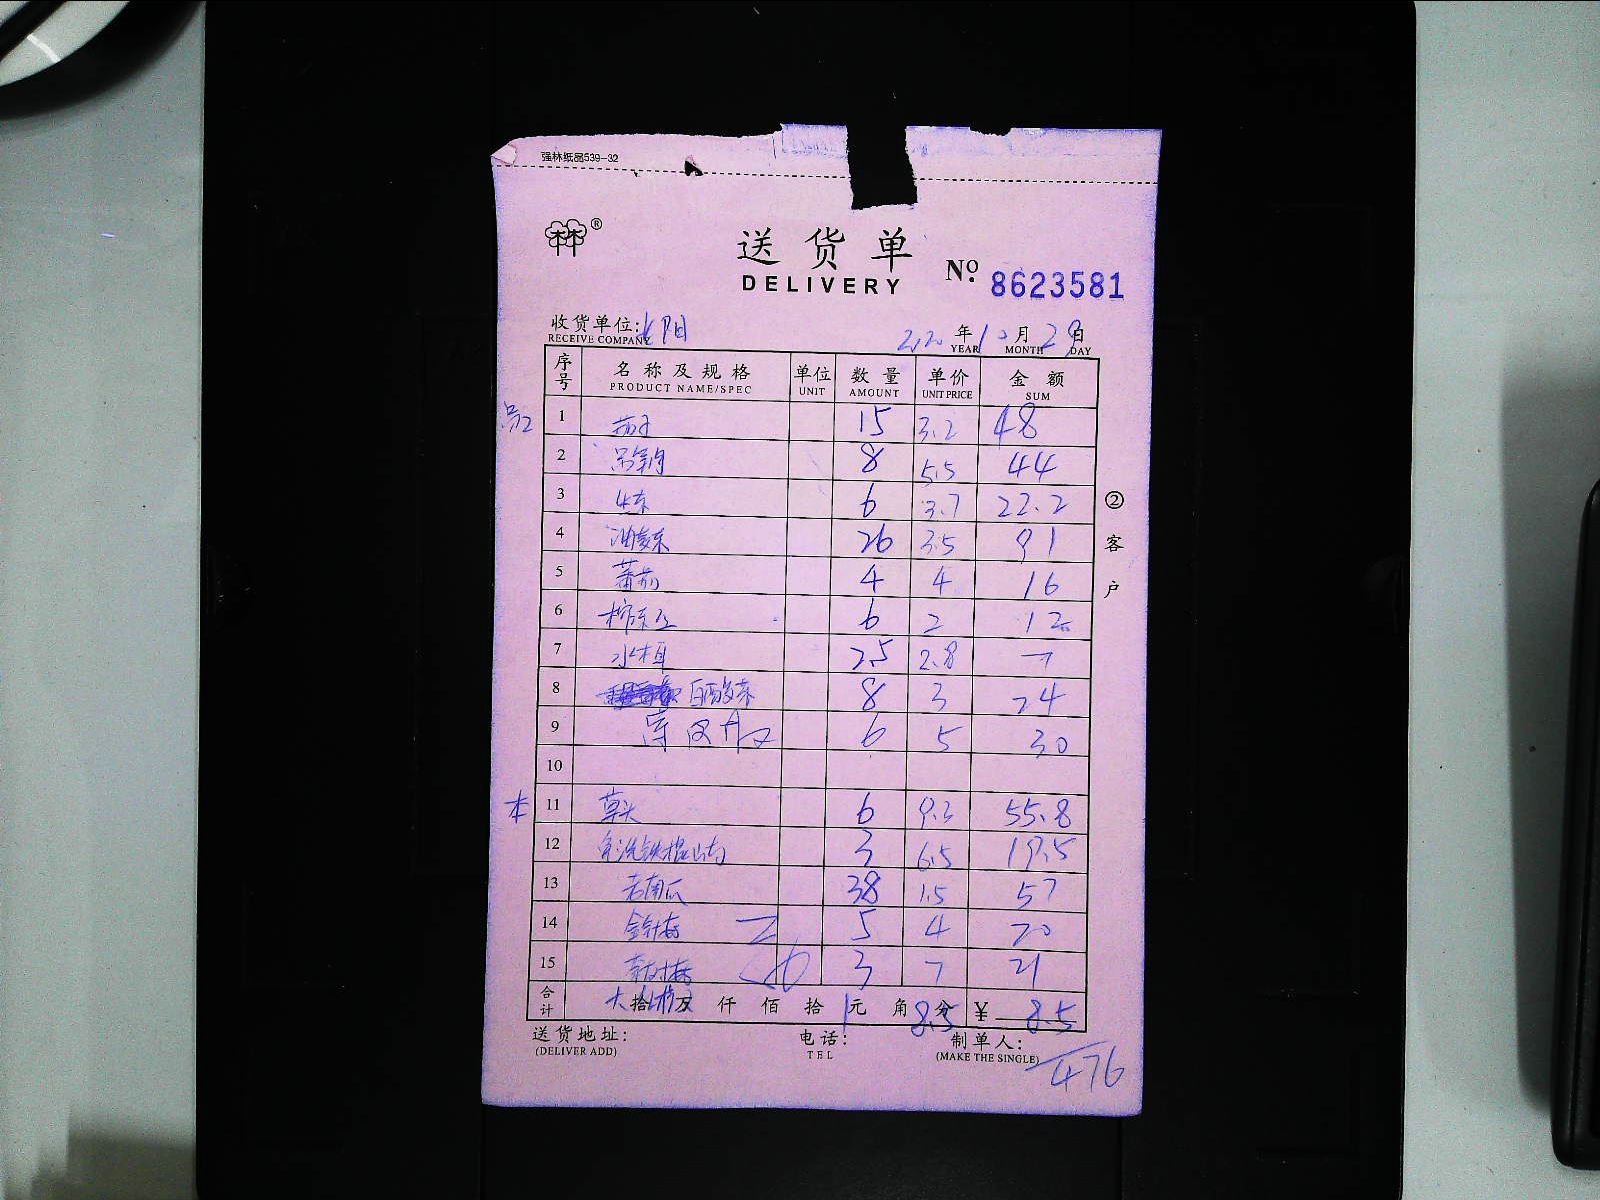 强林纸品539-32
林®
送货单
DELIVERY
No. 8623581
收货单位:
RECEIVE COMPANY
2020年10月29日
YEAR MONTH DAY
序号 名称及规格 单位 数量 单价 金额
PRODUCT NAME/SPEC UNIT AMOUNT UNIT PRICE SUM
1 茄子 15 3.2 48
2 8 5.5 44
3 生菜 6 3.7 22.2
4 油麦菜 26 3.5 91
5 蕃茄 4 4 16
6 6 2 12
7 水木耳 2.5 2.8 7
8 白酸菜 8 3 24
9 6 5 30
10
本 11 草头 6 9.3 55.8
12 铁棍山药 3 6.5 19.5
13 老南瓜 38 1.5 57
14 金针菇 5 4 20
15 3 7 21
合计 拾 万 仟 佰 拾 1元 角 8.5分 ¥ 8.5
② 客户
送货地址: 电话: 制单人:
(DELIVER ADD) TEL (MAKE THE SINGLE)
476